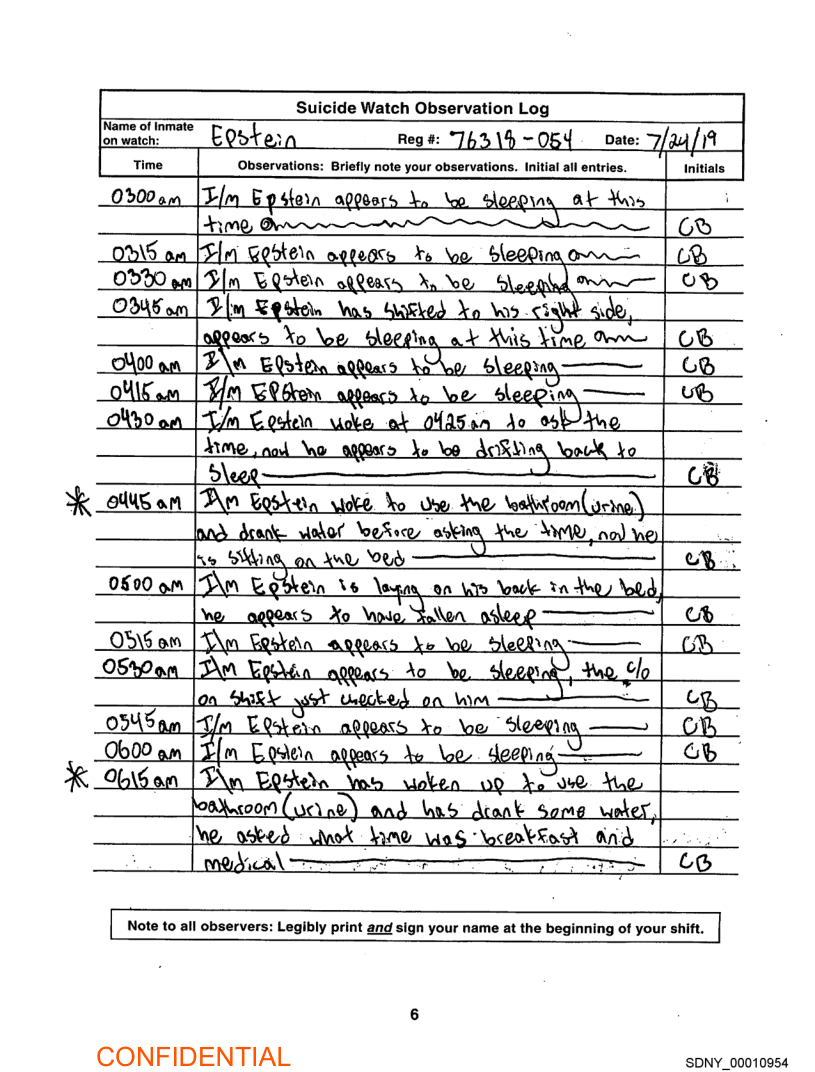 Suicide Watch Observation Log
Name of Inmate on watch: Epstein Reg #: 76318-054 Date: 7/24/19
Time Observations: Briefly note your observations. Initial all entries. Initials
0300 am I/m Epstein appears to be sleeping at this
time CB
0315 am I/m Epstein appears to be sleeping CB
0330 am I/m Epstein appears to be sleeping CB
0345 am I/m Epstein has shifted to his right side,
appears to be sleeping at this time CB
0400 am I\m Epstein appears to be sleeping CB
0415 am I/m Epstein appears to be sleeping CB
0430 am I/m Epstein woke at 0425 am to ask the
time, now he appears to be drifting back to
sleep CB
* 0445 am I\m Epstein woke to use the bathroom (urine)
and drank water before asking the time, now he
is sitting on the bed CB
0500 am I\m Epstein is laying on his back in the bed,
he appears to have fallen asleep CB
0515 am I\m Epstein appears to be sleeping CB
0530 am I\m Epstein appears to be sleeping, the c/o
on shift just checked on him CB
0545 am I/m Epstein appears to be sleeping CB
0600 am I/m Epstein appears to be sleeping CB
* 0615 am I\m Epstein has woken up to use the
bathroom (urine) and has drank some water,
he asked what time was breakfast and
medical CB
Note to all observers: Legibly print and sign your name at the beginning of your shift.
6
CONFIDENTIAL
SDNY_00010954